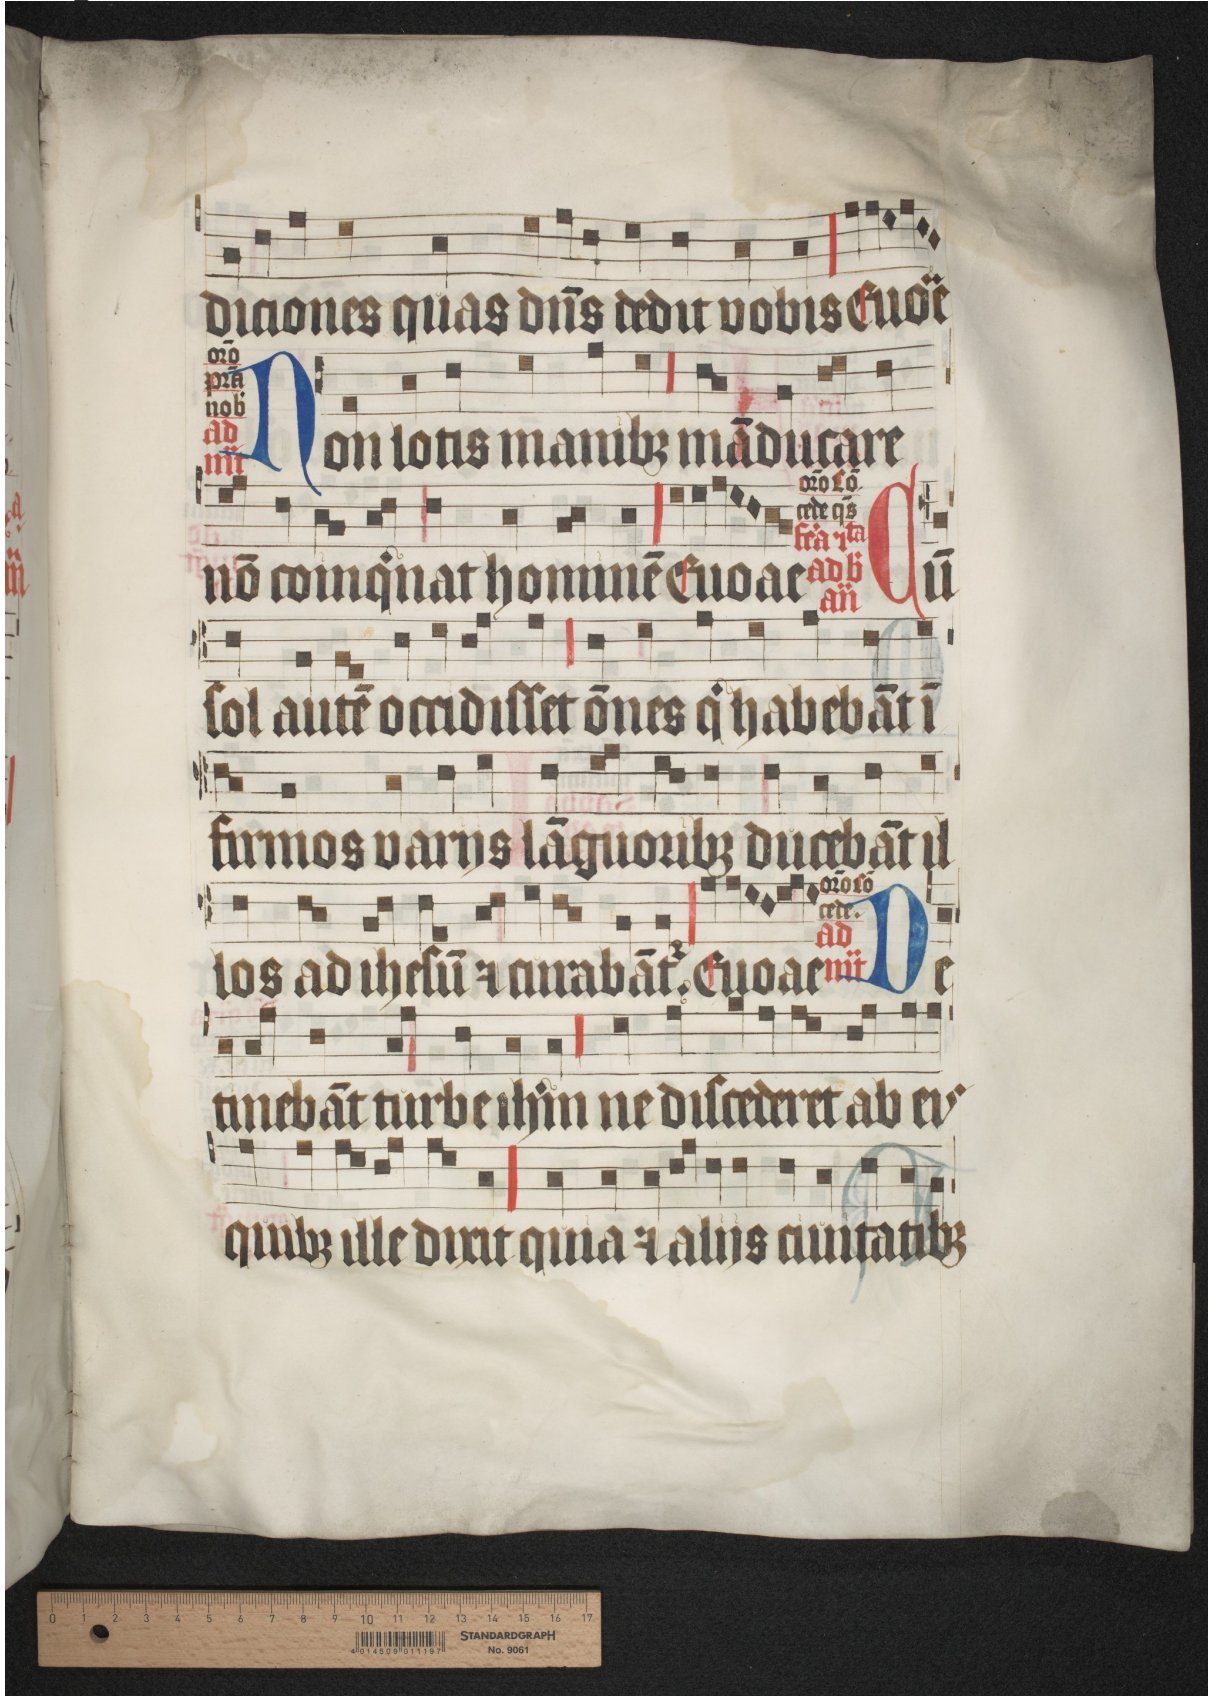 diciones quas dn̄s dedit vobis Euoe
oro
pr̄ta
nob
ad
mr̄
Non lotis manibꝫ māducare
nō coinq̇nat hominē Euoae
oro Cō
cede qs̄
feria vta
ad b̄
an̄
Cū
sol autē occidisset ōnes q̇ habebāt ī
firmos varijs lāguoribꝫ ducebāt il
los ad ihesū ⁊ curabātr. Euoae
oro Cō
cede.
ad
mr̄
De
tinebāt turbe ihm̄ ne discederet ab eis
quibꝫ ille dixit quia ⁊ alijs ciuitatibꝫ
0 1 2 3 4 5 6 7 8 9 10 11 12 13 14 15 16 17
4 014509 011197
STANDARDGRAPH
No. 9061